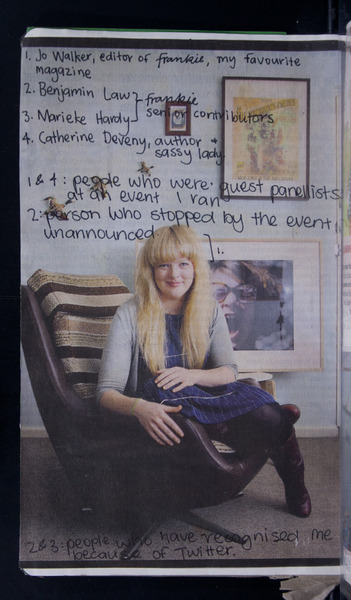 1. Jo Walker, editor of frankie, my favourite
magazine
2. Benjamin Law
3. Marieke Hardy
frankie
senior contributors
4. Catherine Deveny, author +
sassy lady.
1 & 4: people who were guest panellists
at an event I ran
2: person who stopped by the event,
unannounced
1.
2 & 3: people who have recognised me
because of Twitter.